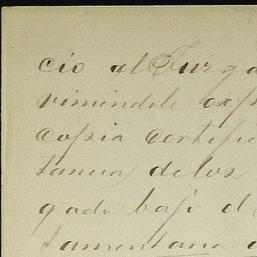 cio al Juzga
rimiendole exp
copia certific
tancia de los
gado bajo el
tamentaria a